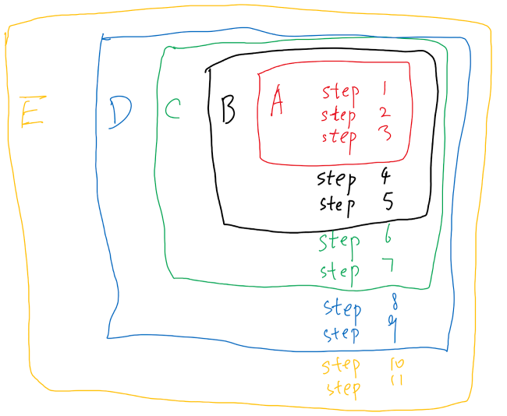 E D C B A step 1
step 2
step 3
step 4
step 5
step 6
step 7
step 8
step 9
step 10
step 11